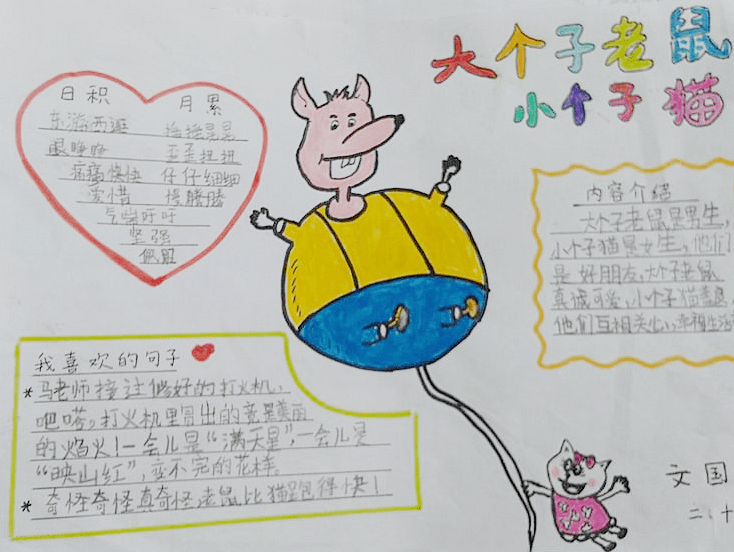 大个子老鼠
小个子猫
日积 月累
东游西逛 摇摇晃晃
眼睁睁 歪歪扭扭
痛痛快快 仔仔细细
爱惜 慢腾腾
气柴吁吁
坚强
佩服
内容介绍
大个子老鼠是男生,
小个子猫是女生,他们
是好朋友,大个子老鼠
真诚可爱,小个子猫善良,
他们互相关心,幸福生活
我喜欢的句子
*马老师接过修好的打火机,
吧嗒,打火机里冒出的竟是美丽
的焰火!一会儿是“满天星”,一会儿是
“映山红”,变不完的花样
*奇怪奇怪真奇怪,老鼠比猫跑得快!
文国
二、十